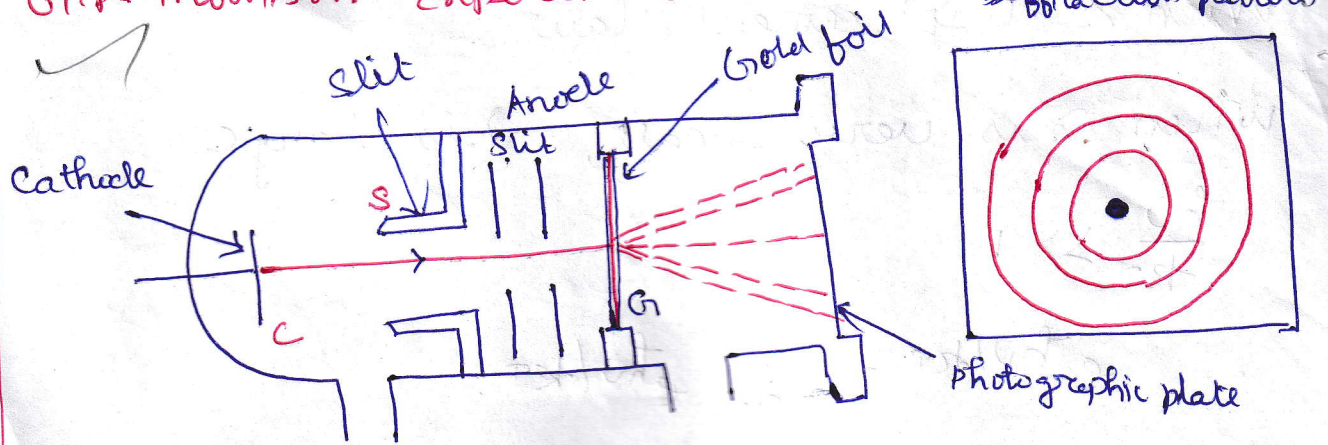 Slit
Anode
Slit
Gold foil
Cathode
S
C
G
photographic plate